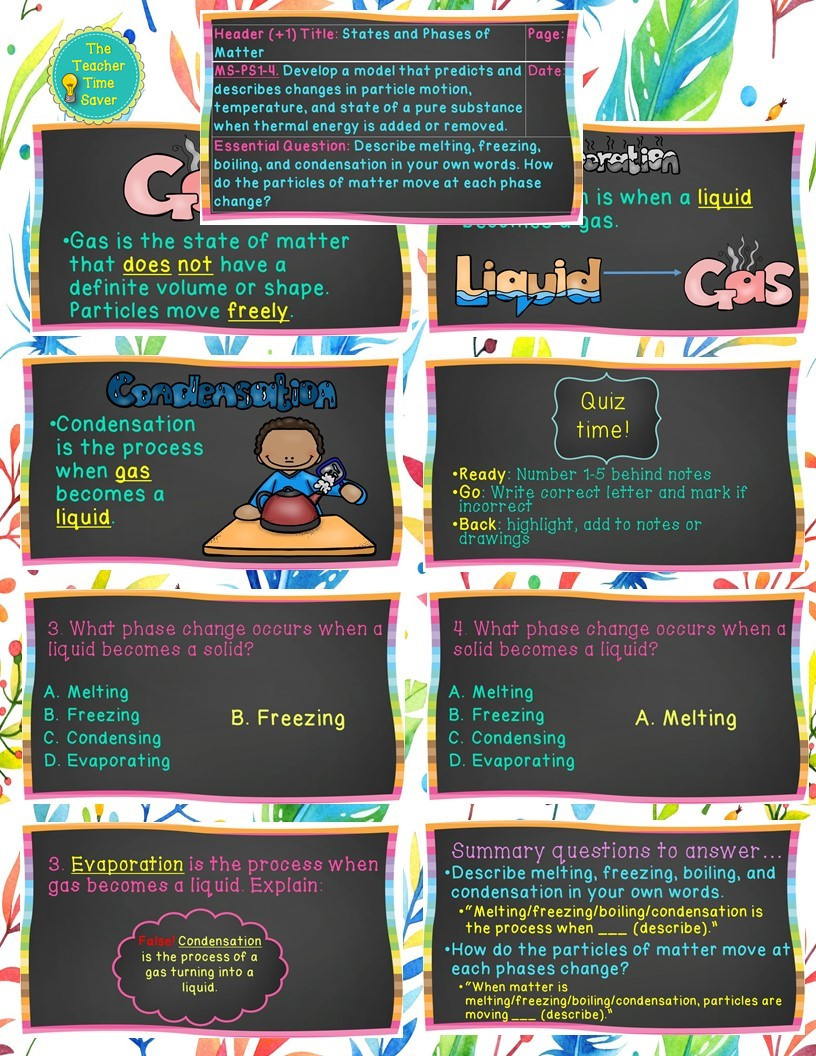 The
Teacher
Time
Saver
Header (+1) Title: States and Phases of
Matter
Page:
MS-PS1-4. Develop a model that predicts and
describes changes in particle motion,
temperature, and state of a pure substance
when thermal energy is added or removed.
Date:
Essential Question: Describe melting, freezing,
boiling, and condensation in your own words. How
do the particles of matter move at each phase
change?
•Gas is the state of matter
that does not have a
definite volume or shape.
Particles move freely.
is when a liquid
becomes a gas.
Liquid
Gas
Condensation
•Condensation
is the process
when gas
becomes a
liquid.
Quiz
time!
•Ready: Number 1-5 behind notes
•Go: Write correct letter and mark if
incorrect
•Back: highlight, add to notes or
drawings
3. What phase change occurs when a
liquid becomes a solid?
A. Melting
B. Freezing
C. Condensing
D. Evaporating
B. Freezing
4. What phase change occurs when a
solid becomes a liquid?
A. Melting
B. Freezing
C. Condensing
D. Evaporating
A. Melting
3. Evaporation is the process when
gas becomes a liquid. Explain:
False! Condensation
is the process of a
gas turning into a
liquid.
Summary questions to answer...
•Describe melting, freezing, boiling, and
condensation in your own words.
•"Melting/freezing/boiling/condensation is
the process when ___ (describe)."
•How do the particles of matter move at
each phases change?
•"When matter is
melting/freezing/boiling/condensation, particles are
moving ___ (describe)."